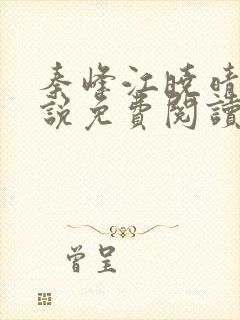 秦峰江晓晴
說免費閱讀
曾呈